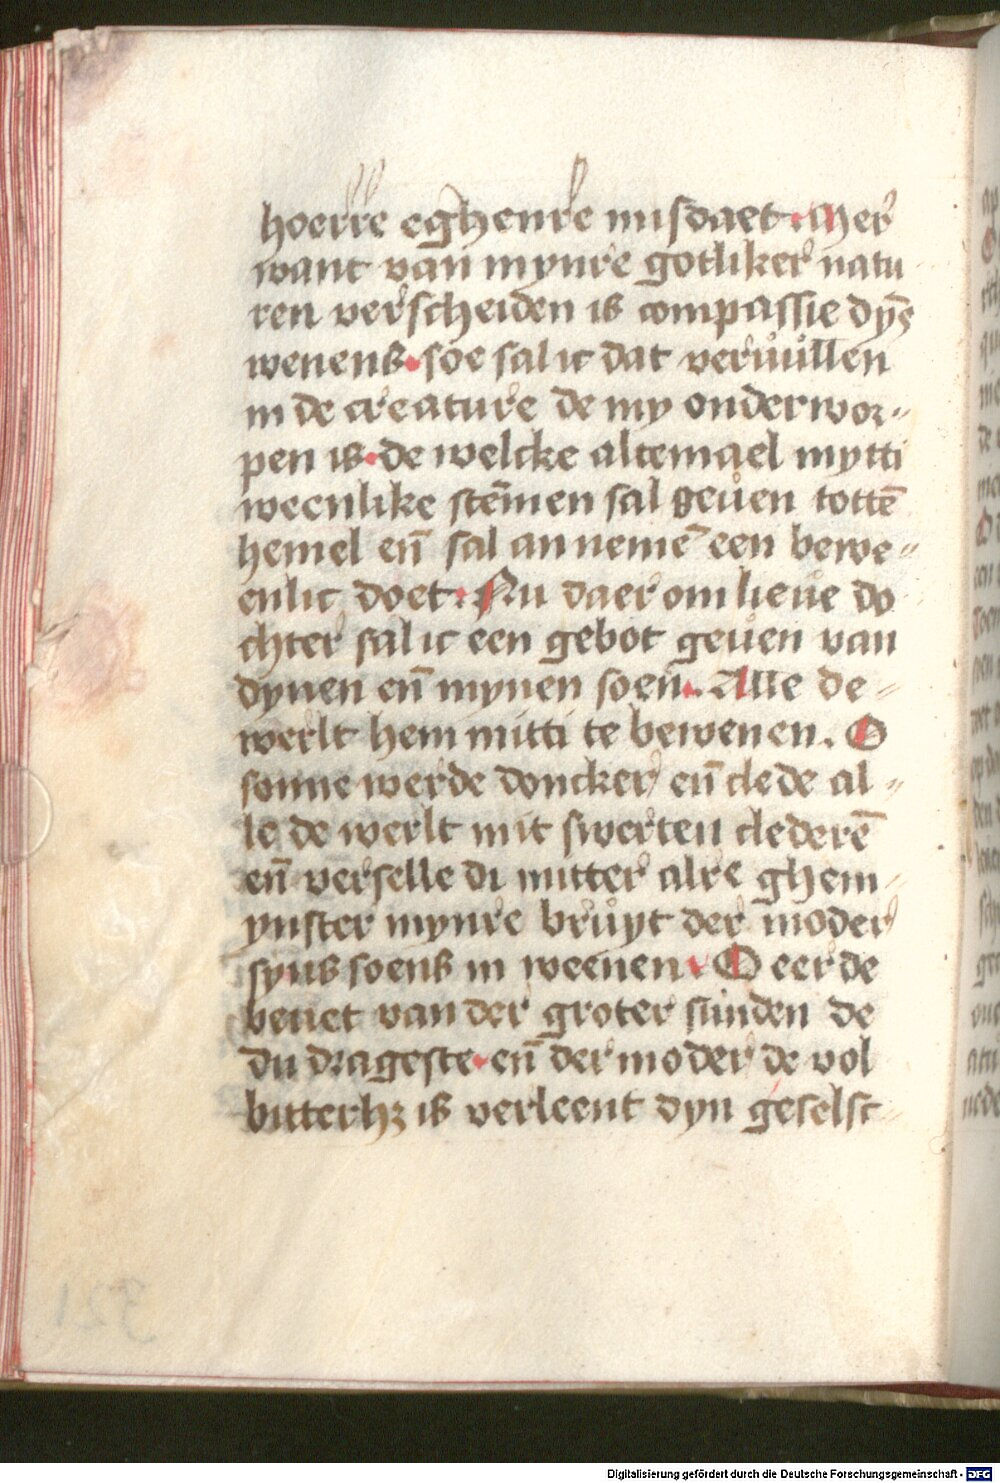 hoerre eghenre misdaet. Mer
want van mynre gotliker natu
ren verscheiden is compassie dyẽs
wenens. soe sal ic dat vervůllen
in de creature de my onderwor-
pen is. de welcke altemael mytti
weenlike stẽmen sal geůen tottẽ
hemel eñ sal an nemẽ een bewe-
enlic doet. Nu daer om lieue do
chter sal ic een gebot geůen van
dynen eñ mynen soen. Alle de-
werlt hem mitti te bewenen. O
sonne werde doncker eñ clede al-
le de werlt mit swerten clederẽ
eñ verselle di mitter alre ghem-
ynster mynre brůyt der moder
syns soens in weenen. O eerde
beuet van der groter sunden de
du drageste. eñ der moder de vol
bitterhꝫ is verleent dyn geselst-
321
Digitalisierung gefördert durch die Deutsche Forschungsgemeinschaft - DFG